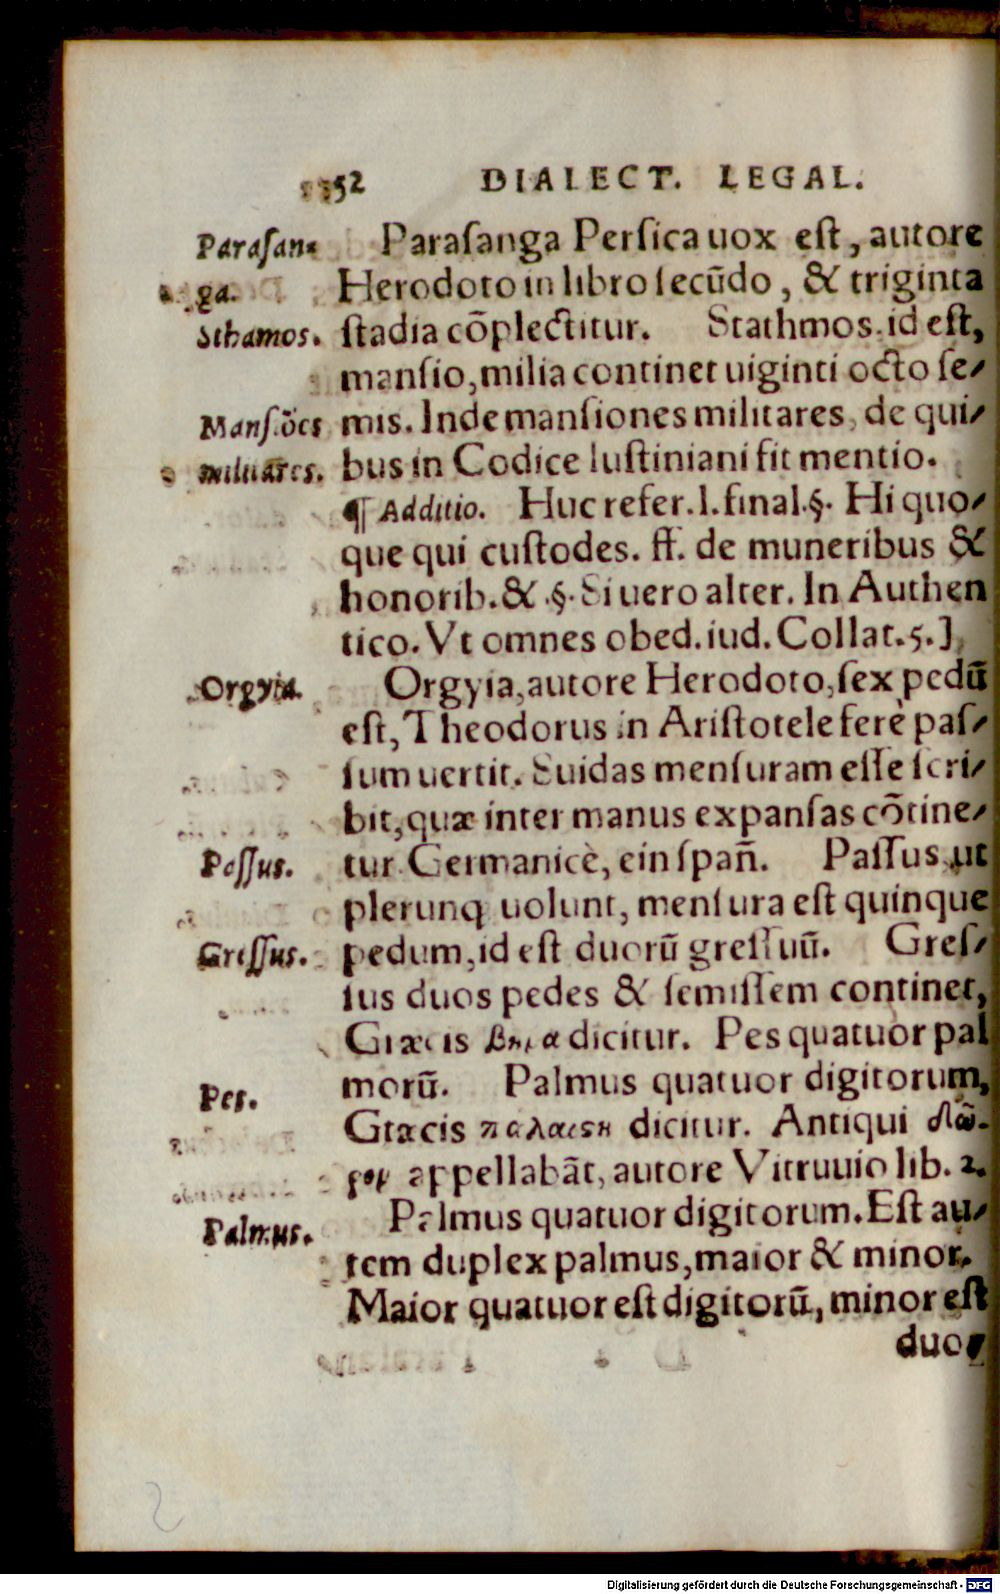 52 DIALECT. LEGAL.
Paraſan-
ga.
Sthamos.
Manſiões
militares.
Orgyia.
Paſſus.
Greſſus.
Pes.
Palmus.
Paraſanga Perſica uox eſt, autore
Herodoto in libro ſecũdo, & triginta
ſtadia cõplectitur. Stathmos. id eſt,
manſio, milia continet uiginti octo ſe-
mis. Inde manſiones militares, de qui-
bus in Codice Iuſtiniani fit mentio.
¶ Additio. Huc refer. l. final. §. Hi quo-
que qui cuſtodes. ff. de muneribus &
honorib. & .§. Si uero alter. In Authen
tico. Vt omnes obed. iud. Collat. 5.]
Orgyia, autore Herodoto, ſex pedũ
eſt, Theodorus in Ariſtotele ferè paſ-
ſum uertit. Suidas menſuram eſſe ſcri-
bit, quæ inter manus expanſas cõtine-
tur. Germanicè, ein ſpañ. Paſſus, ut
plerunq uolunt, menſura eſt quinque
pedum, id eſt duorũ greſſuũ. Greſ-
ſus duos pedes & ſemiſſem continet,
Græcis βημα dicitur. Pes quatuor pal
morũ. Palmus quatuor digitorum,
Græcis παλαιϛη dicitur. Antiqui δῶ-
ρον appellabãt, autore Vitruuio lib. 2.
Palmus quatuor digitorum. Eſt au-
tem duplex palmus, maior & minor.
Maior quatuor eſt digitorũ, minor eſt
duo-
Digitalisierung gefördert durch die Deutsche Forschungsgemeinschaft - DFG